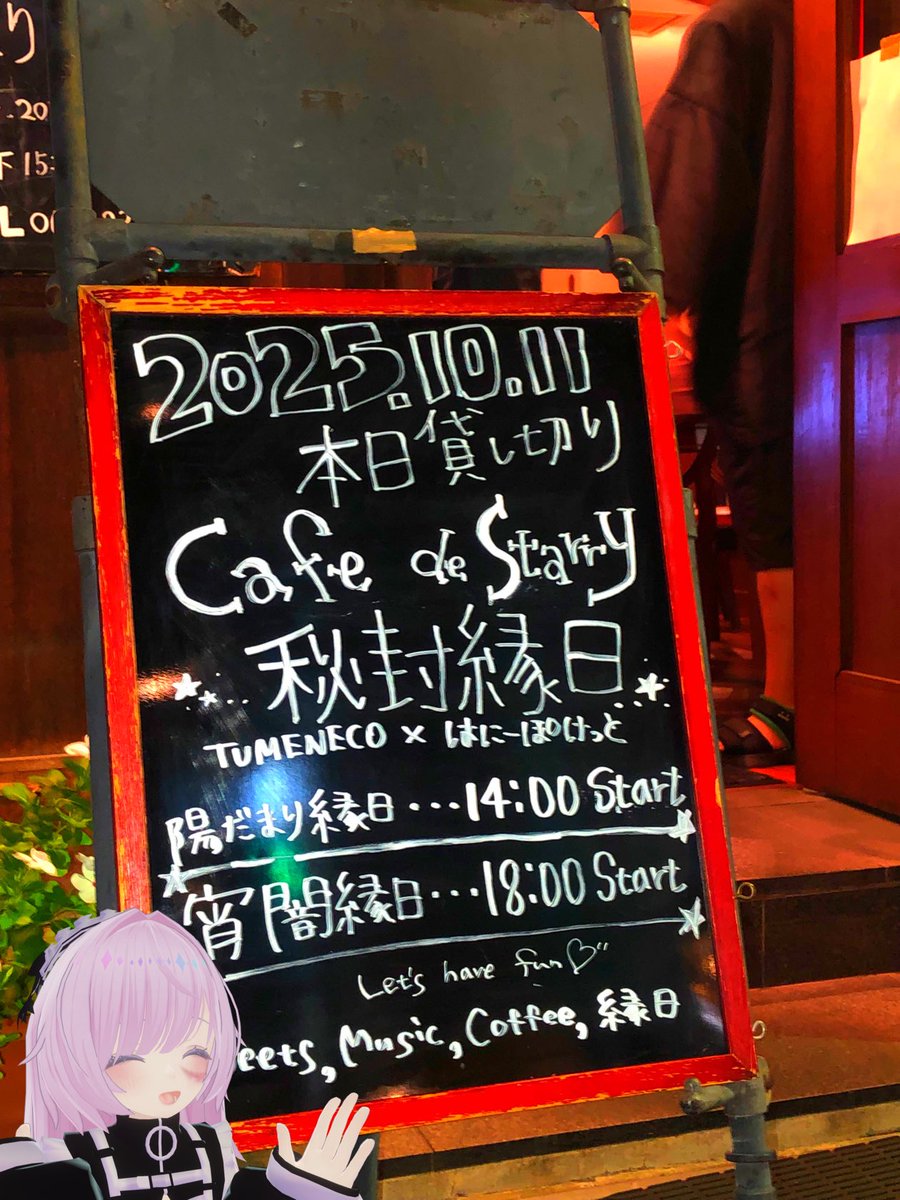 り
.20
下15:
L0
2025.10.11
本日貸し切り
Cafe de Starry
秘封縁日
TUMENECO × はにーぽけっと
陽だまり縁日…14:00 Start
宵闇縁日…18:00 Start
Let's have fun♡"
eets, Music, Coffee, 縁日